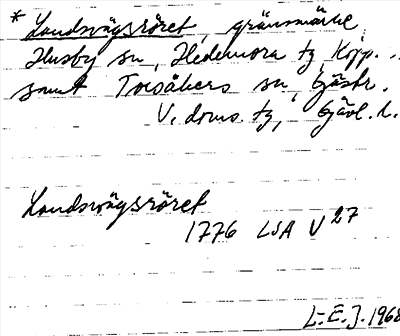 * Landsvägsröret, gränsmärke
Husby sn, Hedemora tg, Kopp. ..
samt Torsåkers sn, Gästr.
V. doms. tg, Gävl. l.
Landsvägsröret
1776 LSA V 27
L-E. J. 1968